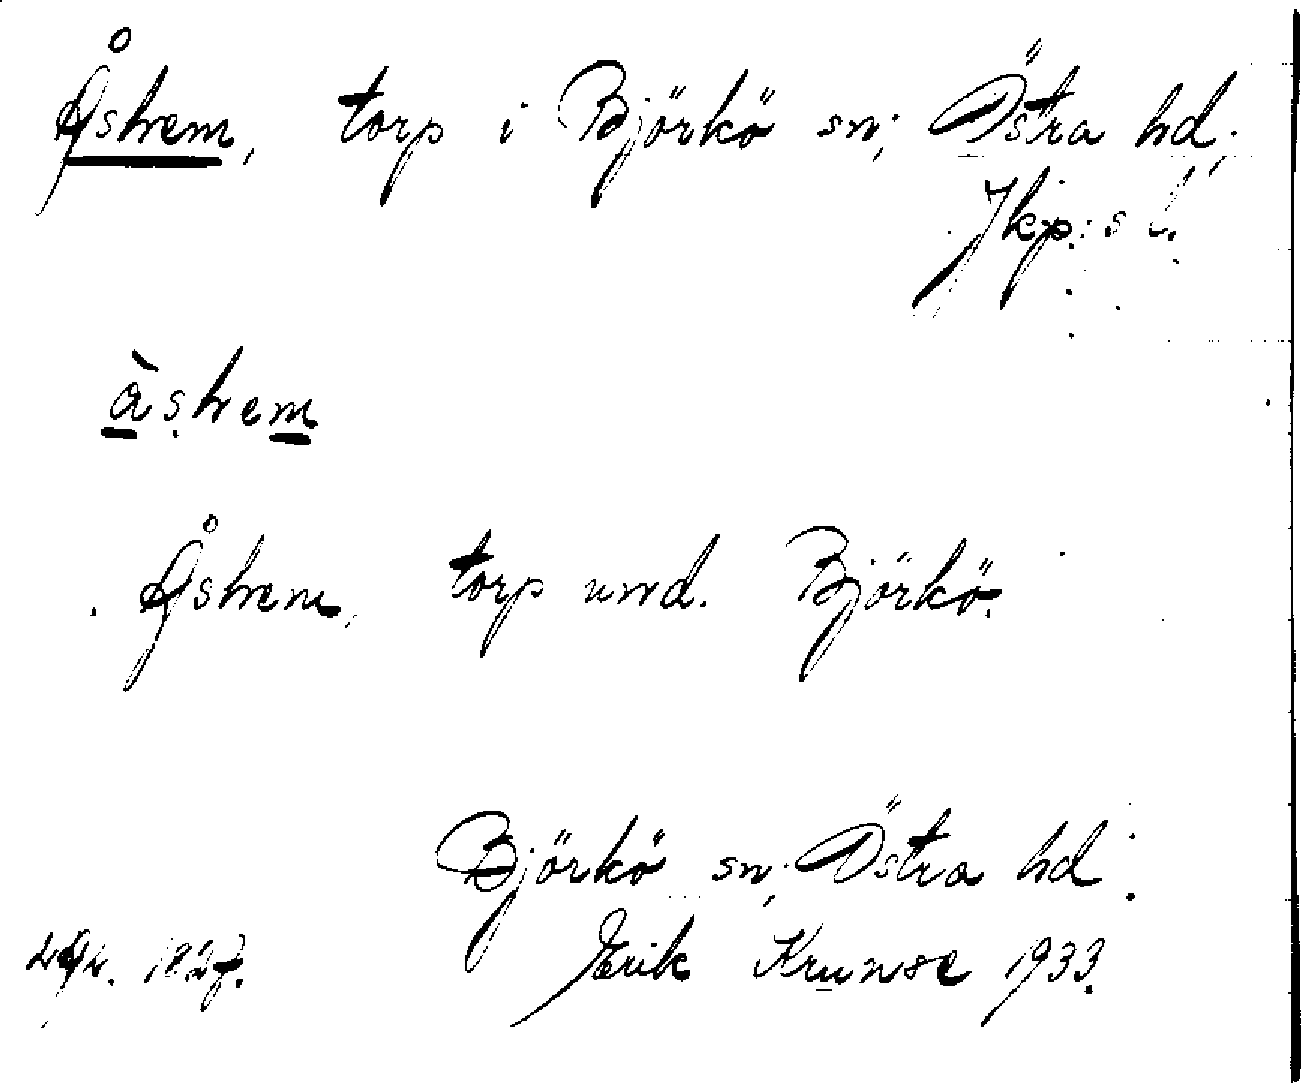 Åshem, torp i Björkö sn, Östra hd,
Jkp:s l.
àshem
Åshem, torp und. Björkö.
Björkö sn, Östra hd.
Erik Krunse 1933.